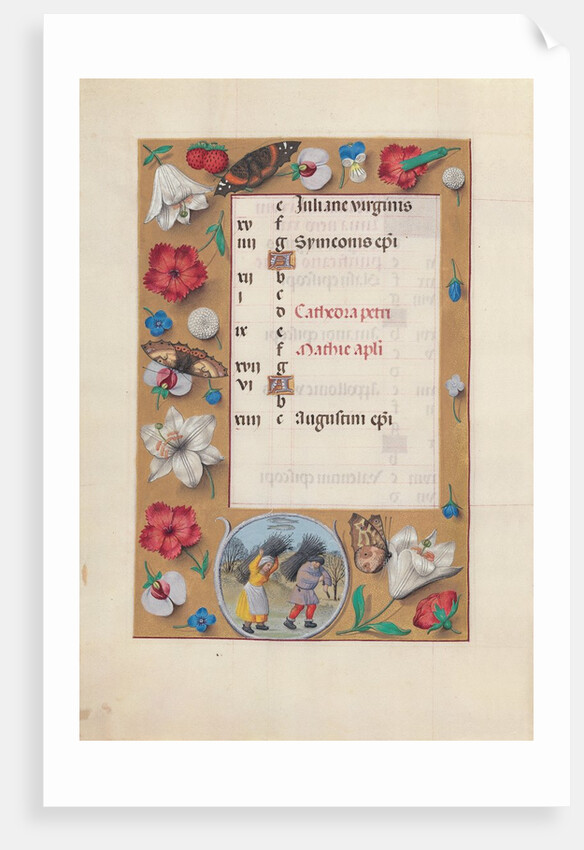 e Juliane virginis
xv f
iiij g Symeonis ep̄i
A
xij b
j c
d Cathedra petri
ix e
f Mathie apl̄i
xvij g
vj A
b
xiiij c Augustini ep̄i